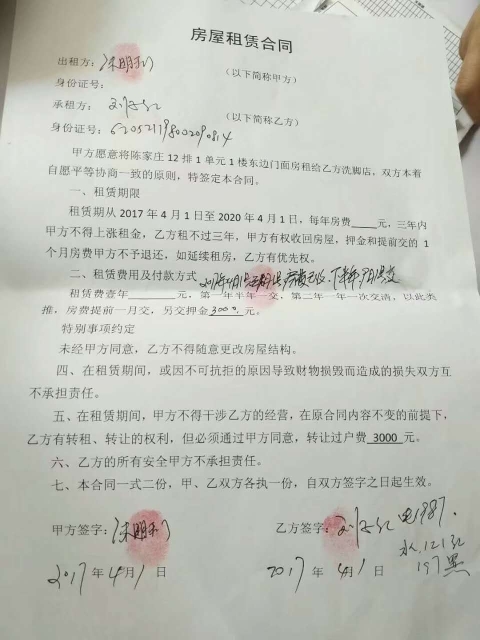 房屋租赁合同
出租方：
（以下简称甲方）
身份证号：
承租方：
（以下简称乙方）
身份证号：
甲方愿意将陈家庄 12 排 1 单元 1 楼东边门面房租给乙方洗脚店，双方本着
自愿平等协商一致的原则，特签定本合同。
一、租赁期限
租赁期从 2017 年 4 月 1 日至 2020 年 4 月 1 日，每年房费____元，三年内
甲方不得上涨租金，乙方租不过三年，甲方有权收回房屋，押金和提前交的 1
个月房费甲方不予退还，如延续租房，乙方有优先权。
二、租赁费用及付款方式
租赁费壹年________元，第一年半年一交，第二年一年一次交清，以此类
推，房费提前一月交，另交押金 3000 元。
特别事项约定
未经甲方同意，乙方不得随意更改房屋结构。
四、在租赁期间，或因不可抗拒的原因导致财物损毁而造成的损失双方互
不承担责任。
五、在租赁期间，甲方不得干涉乙方的经营，在原合同内容不变的前提下，
乙方有转租、转让的权利，但必须通过甲方同意，转让过户费 3000 元。
六、乙方的所有安全甲方不承担责任。
七、本合同一式二份，甲、乙双方各执一份，自双方签字之日起生效。
甲方签字：
乙方签字：
电1987.
水.121红
197黑
2017 年 4月1 日
2017 年 4月1 日